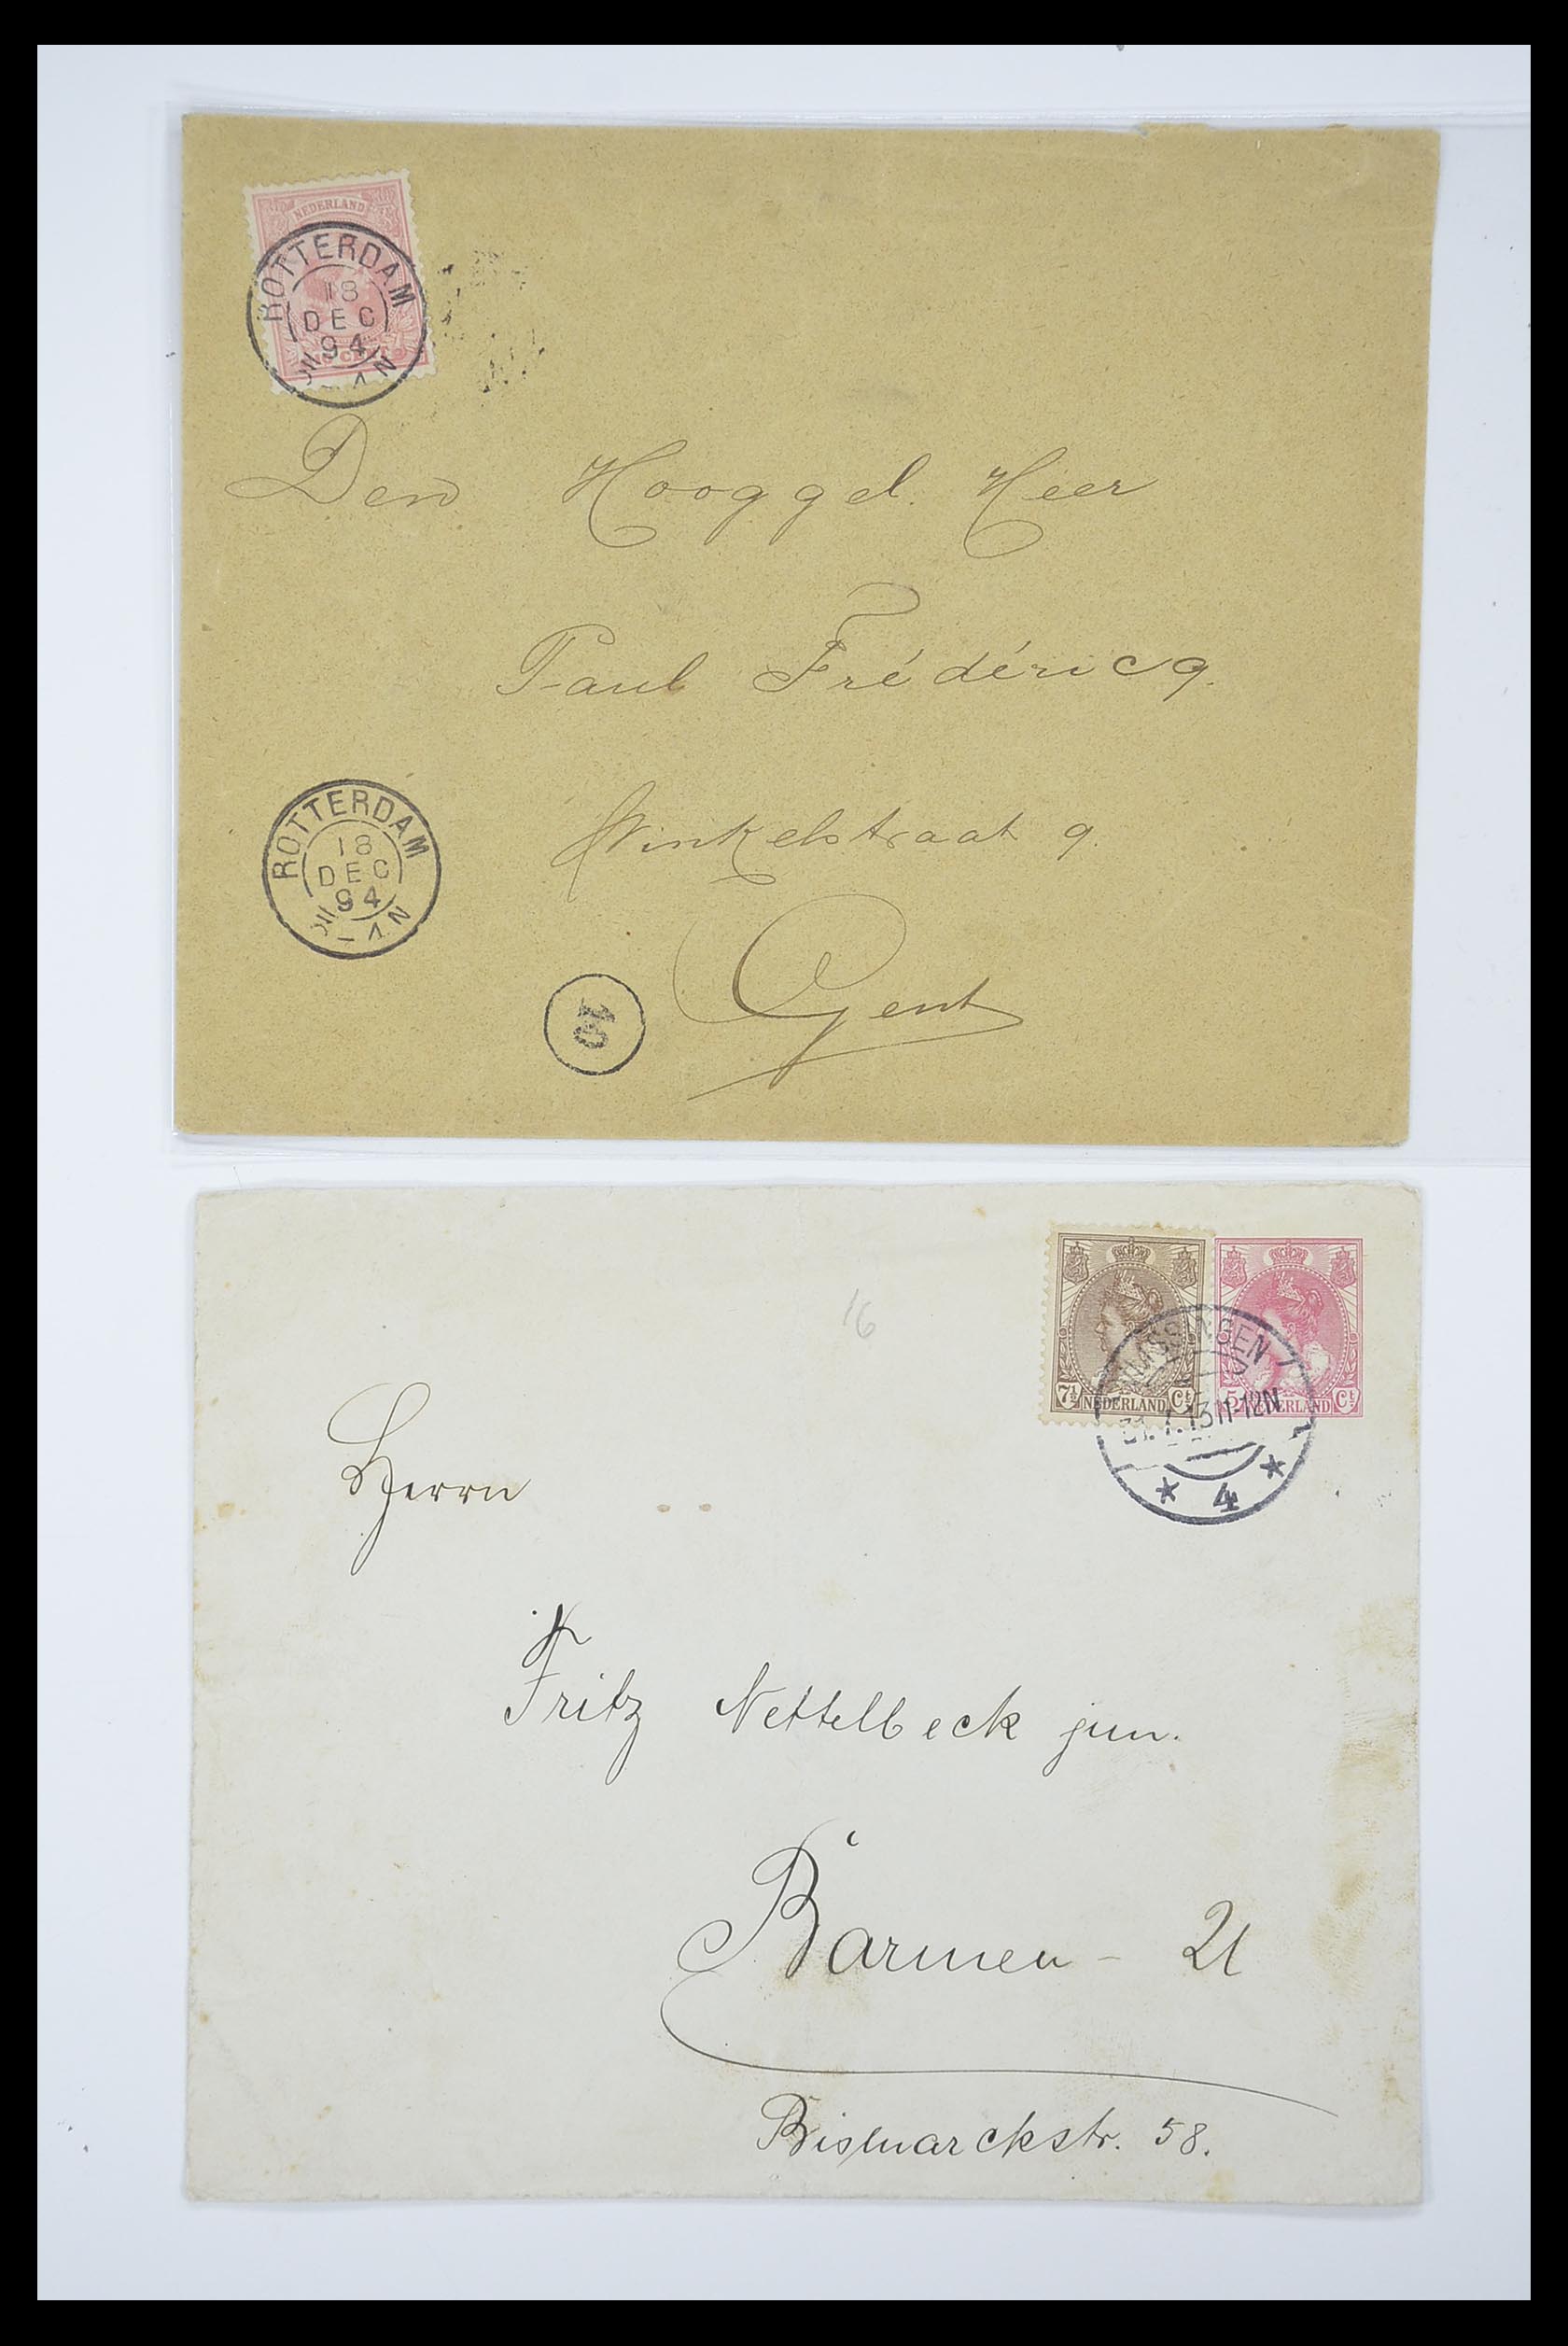 NEDERLAND
ROTTERDAM
18
DEC
94
Den Hooggel. Heer
Paul Frédéricq.
Winkelstraat 9.
Gent
ROTTERDAM
18
DEC
94
10
16
7½ NEDERLAND Ct
5 NEDERLAND Ct
VLISSINGEN
11-12N
* 4 *
Herrn
Fritz Nettelbeck jun.
Barmen - U
Bismarckstr. 58.